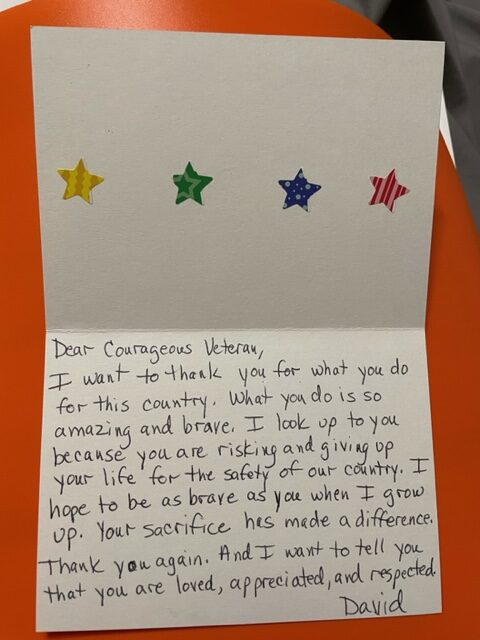 Dear Courageous Veteran,
I want to thank you for what you do
for this country. What you do is so
amazing and brave. I look up to you
because you are risking and giving up
your life for the safety of our country. I
hope to be as brave as you when I grow
up. Your sacrifice has made a difference.
Thank you again. And I want to tell you
that you are loved, appreciated, and respected.
David